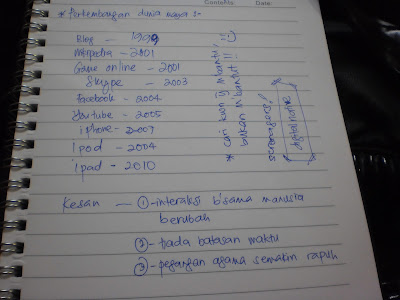 Contents
Date:
* Pertembangan dunia maya :-
Blog - 1999
Wikipedia - 2001
Game online - 2001
Skype - 2003
Facebook - 2004
Youtube - 2005
iphone - 2007
ipod - 2004
ipad - 2010
* cari kawan yg m'bantu !! :)
bukan m'bantut !!
screenagers?
digital native
Kesan - ① - interaksi b'sama manusia
berubah
② - tiada batasan waktu
③ - pegangan agama semakin rapuh